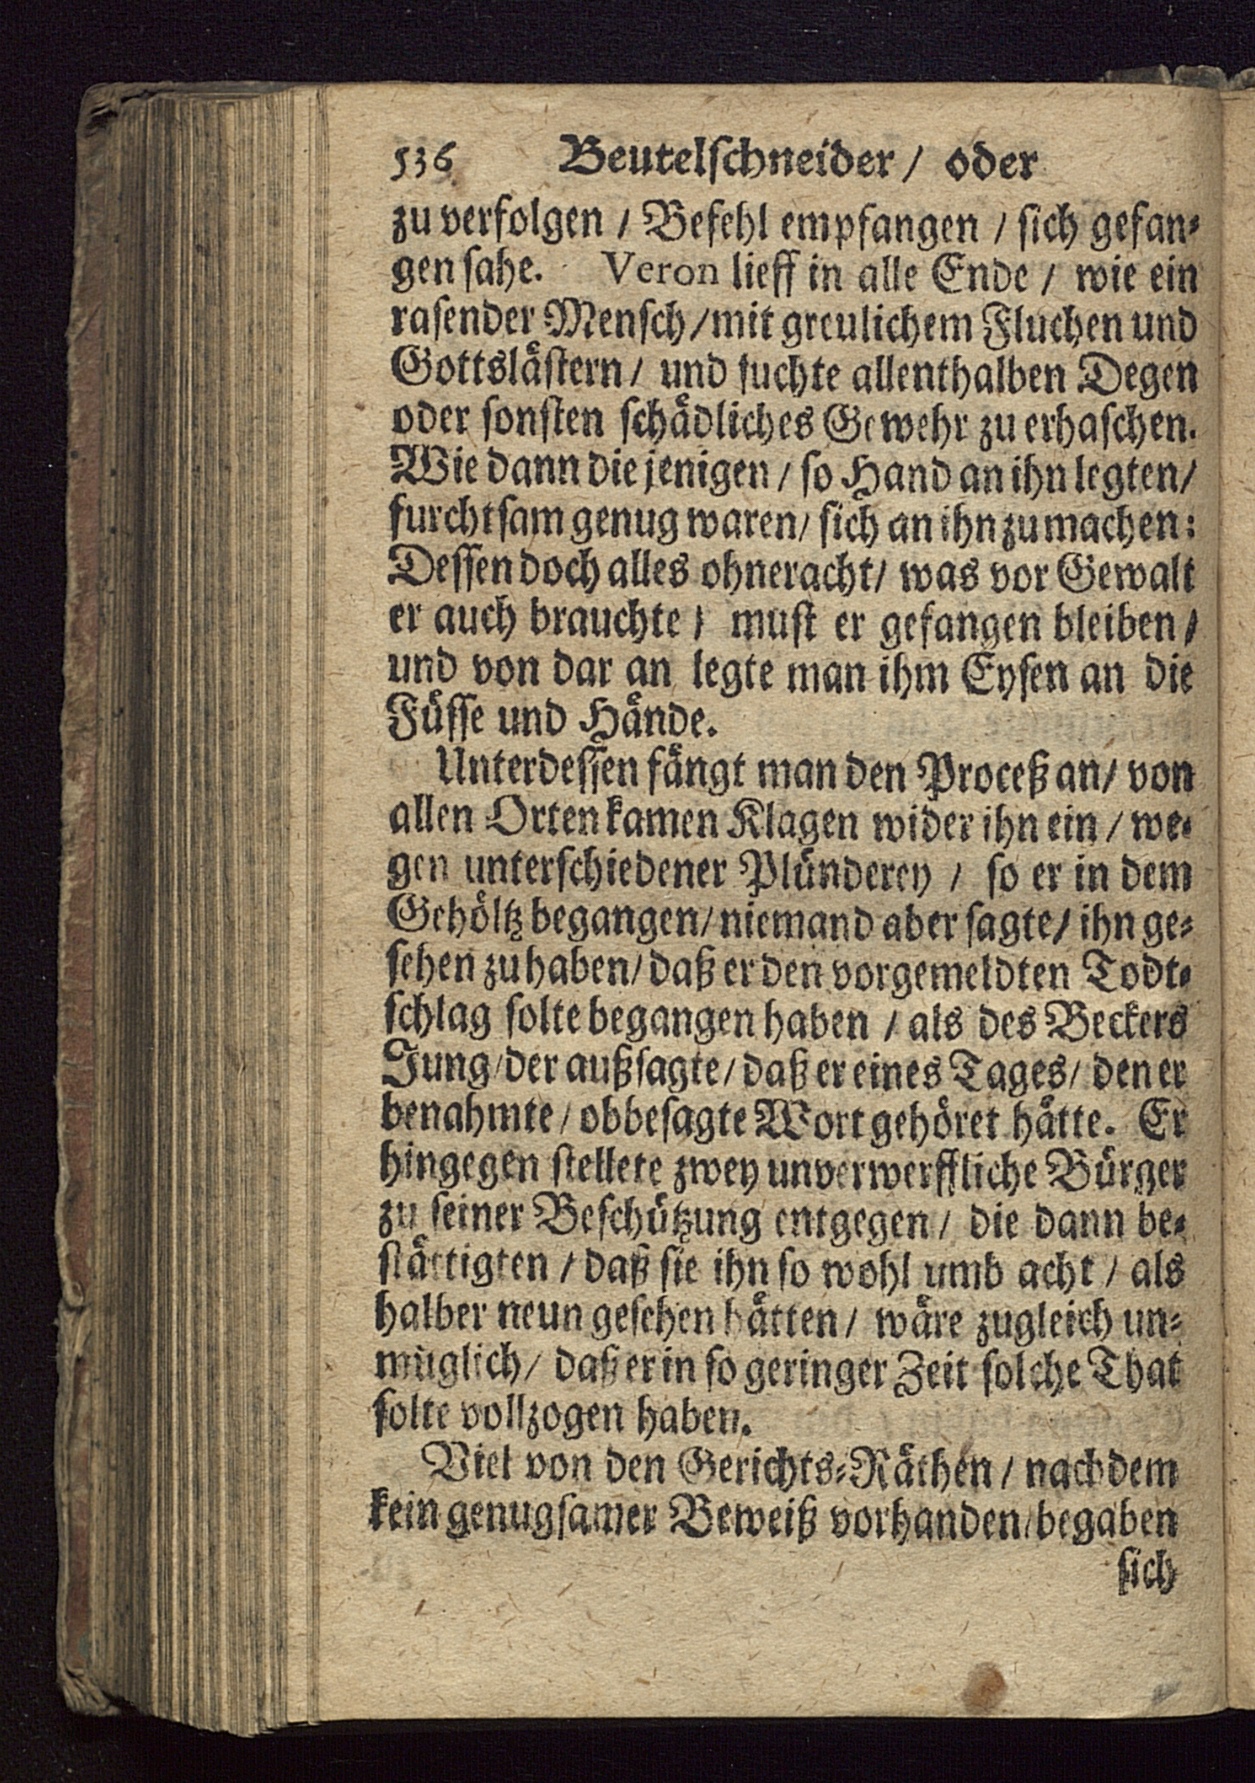 536 Beutelschneider / oder
zu verfolgen / Befehl empfangen / sich gefan-
gen sahe. Veron lieff in alle Ende / wie ein
rasender Mensch / mit greulichem Fluchen und
Gottslästern / und suchte allenthalben Degen
oder sonsten schädliches Gewehr zu erhaschen.
Wie dann die jenigen / so Hand an ihn legten /
furchtsam genug waren / sich an ihn zu machen:
Dessen doch alles ohneracht / was vor Gewalt
er auch brauchte / must er gefangen bleiben /
und von dar an legte man ihm Eysen an die
Füsse und Hände.
Unterdessen fängt man den Proceß an / von
allen Orten kamen Klagen wider ihn ein / we-
gen unterschiedener Plünderey / so er in dem
Gehöltz begangen / niemand aber sagte / ihn ge-
sehen zu haben / daß er den vorgemeldten Todt-
schlag solte begangen haben / als des Beckers
Jung / der außsagte / daß er eines Tages / den er
benahmte / obbesagte Wort gehöret hätte. Er
hingegen stellete zwey unverwerffliche Bürger
zu seiner Beschützung entgegen / die dann be-
stättigten / daß sie ihn so wohl umb acht / als
halber neun gesehen hätten / wäre zugleich un-
müglich / daß er in so geringer Zeit solche That
solte vollzogen haben.
Viel von den Gerichts-Räthen / nachdem
kein genugsamer Beweiß vorhanden / begaben
sich